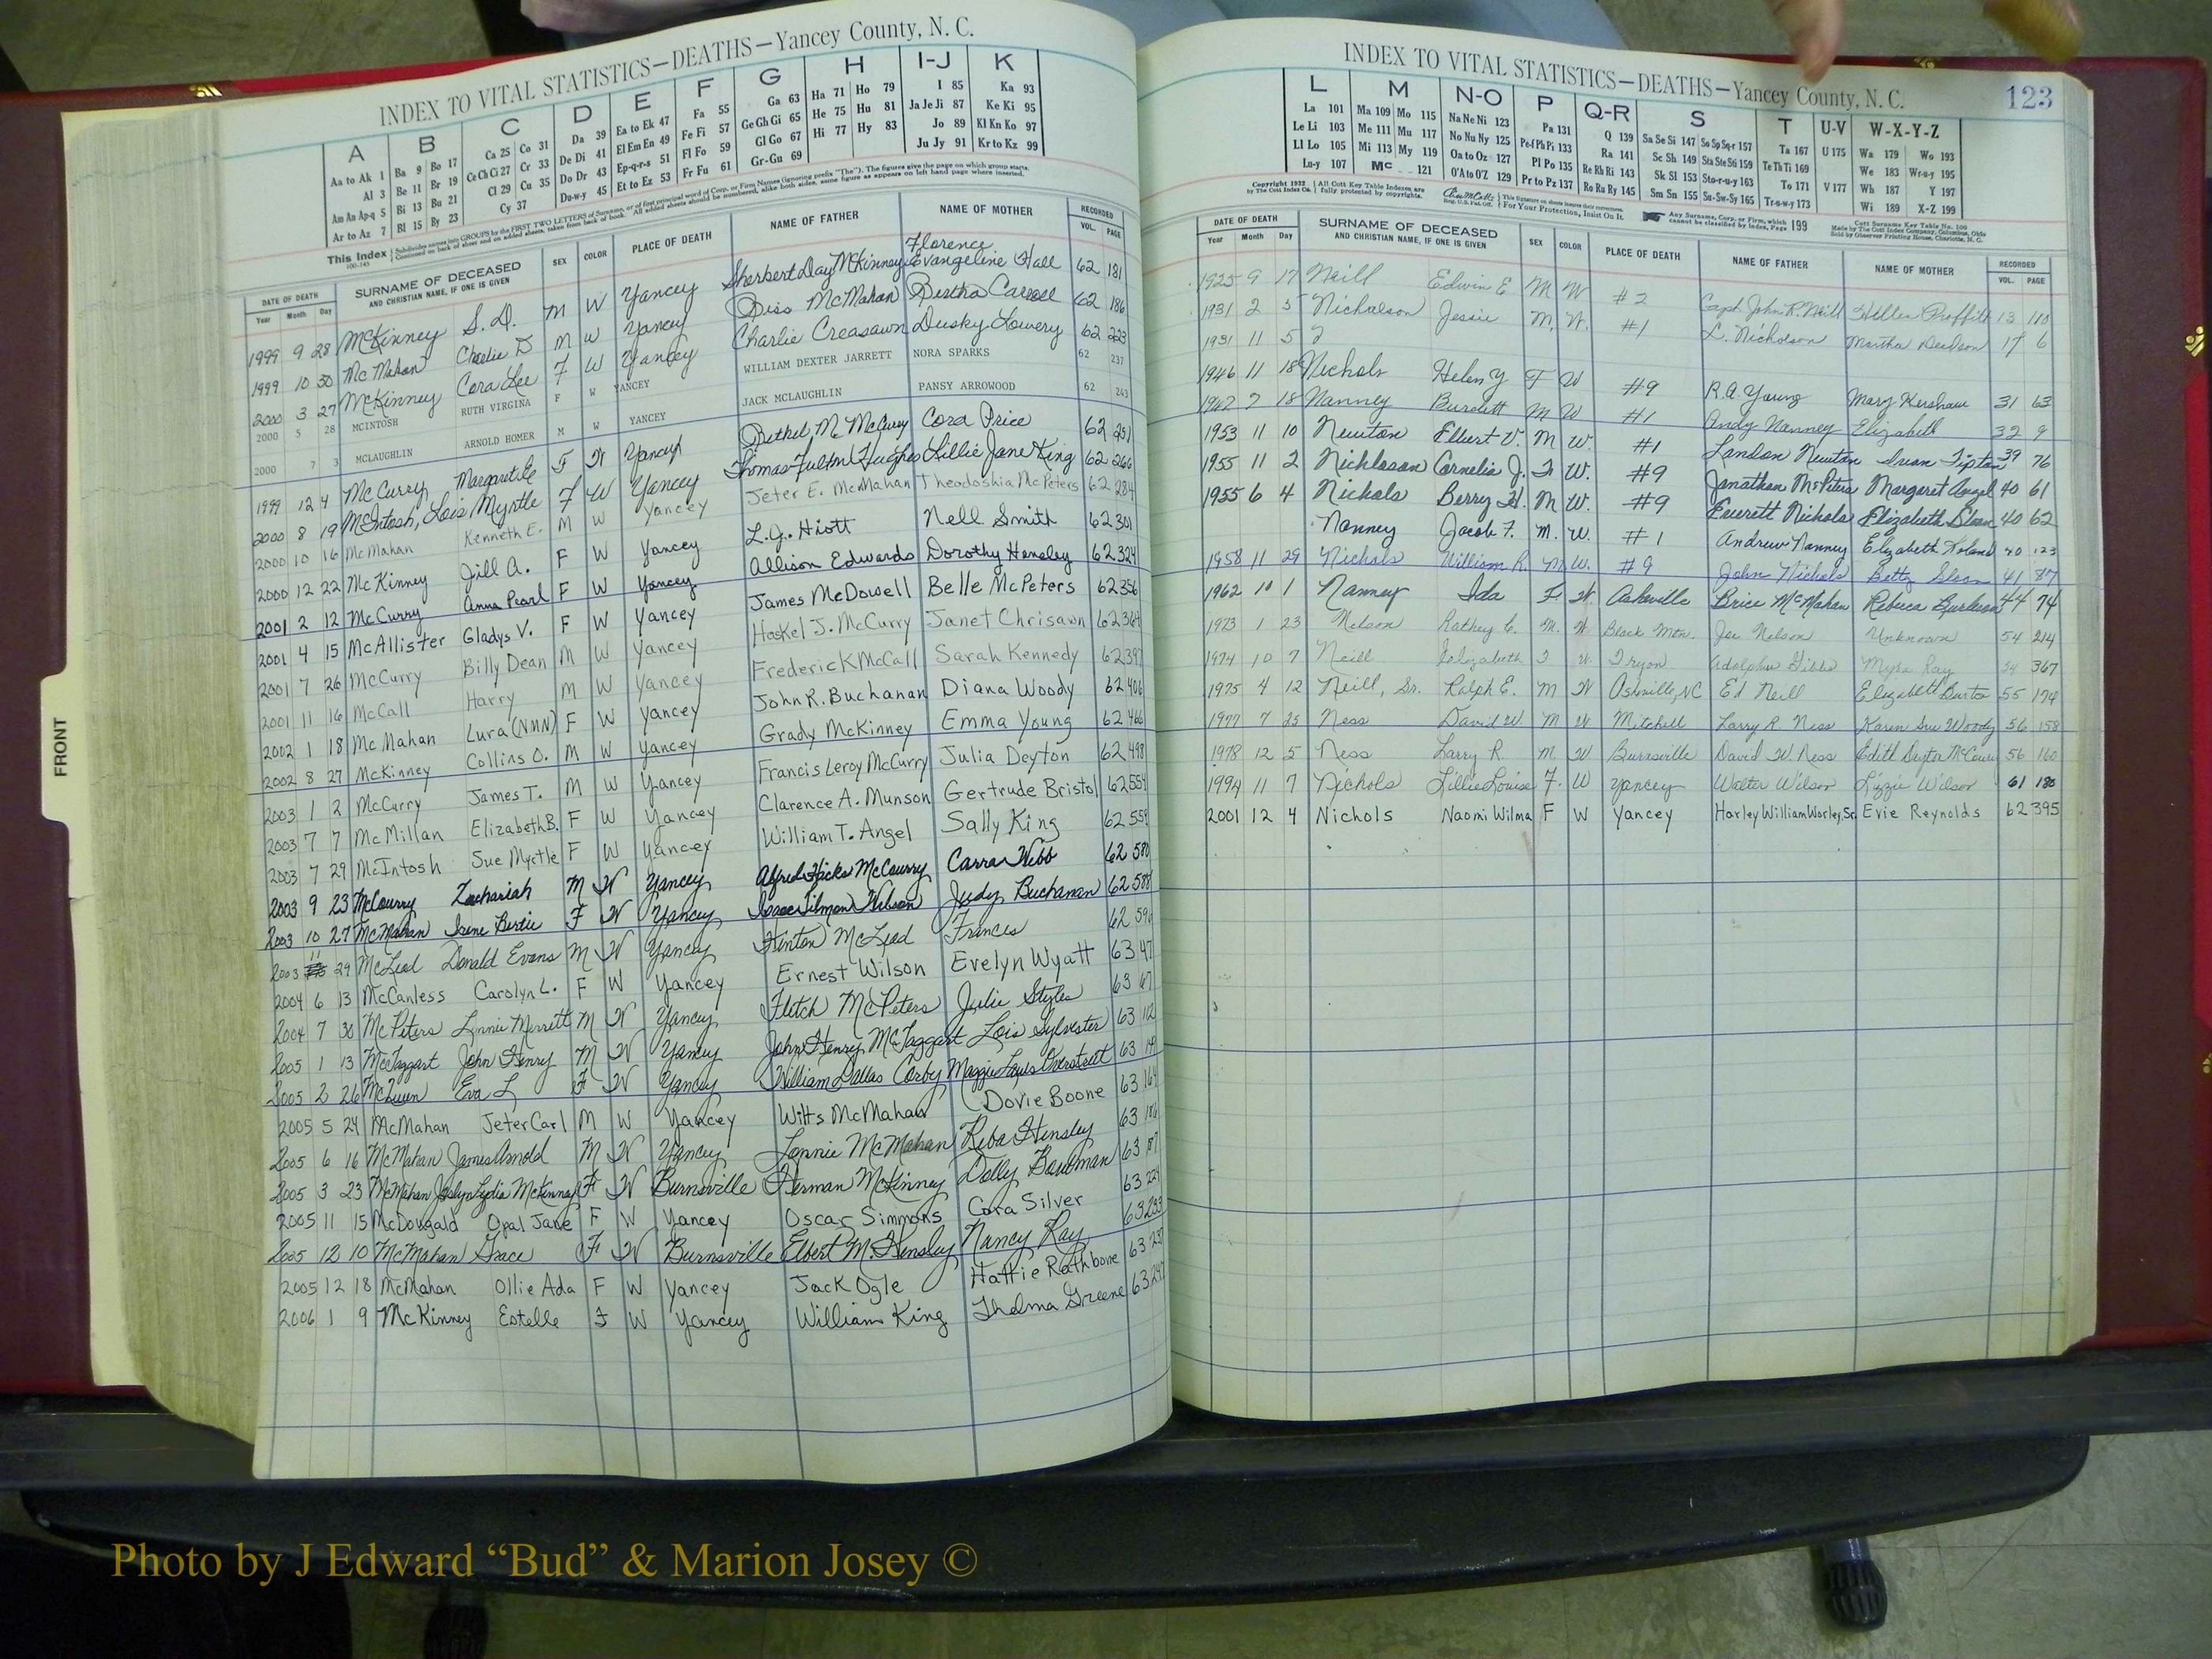 INDEX TO VITAL STATISTICS—DEATHS—Yancey County, N. C.
A B C D E F G H I-J K
Aa to Ak 1 Ba 9 Bo 17 Ca 25 Co 31 Da 39 Ea to Ek 47 Fa 55 Ga 63 Ha 71 Ho 79 I 85 Ka 93
Al 3 Be 11 Br 19 Ce Ch Ci 27 Cr 33 De Di 41 El Em En 49 Fe Fi 57 Ge Gh Gi 65 He 75 Hu 81 Ja Je Ji 87 Ke Ki 95
Am An Ap-q 5 Bi 13 Bu 21 Cl 29 Cu 35 Do Dr 43 Ep-q-r-s 51 Fl Fo 59 Gl Go 67 Hi 77 Hy 83 Jo 89 Kl Kn Ko 97
Ar to Az 7 Bl 15 By 23 Cy 37 Du-w-y 45 Et to Ez 53 Fr Fu 61 Gr-Gu 69 Ju Jy 91 Kr to Kz 99
This Index
DATE OF DEATH SURNAME OF DECEASED AND CHRISTIAN NAME, IF ONE IS GIVEN SEX COLOR PLACE OF DEATH NAME OF FATHER NAME OF MOTHER RECORDED
Year Month Day VOL. PAGE
1999 9 28 McKinney S. D. M W Yancey Sherbert Day McKinney Florence Evangeline Hall 62 181
1999 10 30 McMahan Charlie D M W Yancey Diss McMahan Bertha Carroll 62 186
2000 3 27 McKinney Cora Lee F W Yancey Charlie Creasawn Dusky Lowery 62 223
2000 5 28 MCINTOSH RUTH VIRGINA F W YANCEY WILLIAM DEXTER JARRETT NORA SPARKS 62 237
2000 7 3 MCLAUGHLIN ARNOLD HOMER M W YANCEY JACK MCLAUGHLIN PANSY ARROWOOD 62 243
1999 12 4 McCurry Margaret F W Yancey Bethel M. McCurry Cora Price 62 251
2000 8 19 McIntosh, Lois Myrtle F W Yancey Thomas Fulton Hughes Lillie Jane King 62 266
2000 10 16 McMahan Kenneth E. M W Yancey Jeter E. McMahan Theodoshia McPeters 62 284
2000 12 22 McKinney Jill A. F W Yancey L.J. Hiott Nell Smith 62 301
2001 2 12 McCurry Anna Pearl F W Yancey Allison Edwards Dorothy Hensley 62 324
2001 4 15 McAllister Gladys V. F W Yancey James McDowell Belle McPeters 62 356
2001 7 26 McCurry Billy Dean M W Yancey Haskel J. McCurry Janet Chrisawn 62 364
2001 11 16 McCall Harry M W Yancey Frederick McCall Sarah Kennedy 62 397
2002 1 18 McMahan Lura (NMN) F W Yancey John R. Buchanan Diana Woody 62 406
2002 8 27 McKinney Collins O. M W Yancey Grady McKinney Emma Young 62 466
2003 1 2 McCurry James T. M W Yancey Francis Leroy McCurry Julia Deyton 62 498
2003 7 7 McMillan Elizabeth B. F W Yancey Clarence A. Munson Gertrude Bristol 62 554
2003 7 29 McIntosh Sue Myrtle F W Yancey William T. Angel Sally King 62 559
2003 9 23 McCourry Zachariah M W Yancey Alfred Hicks McCourry Carra Webb 62 580
2003 10 27 McMahan Irene Bertie F W Yancey Isaac Tilmon Wilson Judy Buchanan 62 588
2003 11 29 McLead Donald Evans M W Yancey Hinton McLead Frances 62
2004 6 13 McCanless Carolyn L. F W Yancey Ernest Wilson Evelyn Wyatt 63 47
2004 7 30 McPeters Lonnie Merrett M W Yancey Fletch McPeters Julie Styles 63 67
2005 1 13 McTaggart John Henry M W Yancey John Henry McTaggart Lois Sylvester 63 112
2005 2 26 McQueen Eva L F W Yancey William Dallas Corby Maggie 63
2005 5 24 McMahan Jeter Carl M W Yancey Wilts McMahan Dovie Boone 63 164
2005 6 16 McMahan James Arnold M W Yancey Lonnie McMahan Reba Hensley 63 186
2005 3 23 McMahan Joslyn Lydia McKinney F W Burnsville Herman McKinney Dolly Bowman 63 187
2005 11 15 McDougald Opal Jane F W Yancey Oscar Simmons Cora Silver 63 224
2005 12 10 McMahan Grace F W Burnsville Elbert M. Hensley Nancy Ray 63 233
2005 12 18 McMahan Ollie Ada F W Yancey Jack Ogle Hattie Rathbone 63 237
2006 1 9 McKinney Estelle F W Yancey William King Thelma Greene 63 247
FRONT
INDEX TO VITAL STATISTICS—DEATHS—Yancey County, N. C. 123
L M N-O P Q-R S T U-V W-X-Y-Z
La 101 Ma 109 Mo 115 Na Ne Ni 123 Pa 131 Q 139 Sa Se Si 147 So Sp Sq-r 157 Ta 167 U 175 Wa 179 Wo 193
Le Li 103 Me 111 Mu 117 No Nu Ny 125 Pe-f Ph Pi 133 Ra 141 Sc Sh 149 Sta Ste Sti 159 Te Th Ti 169 We 183 Wr-u-y 195
Ll Lo 105 Mi 113 My 119 Oa to Oz 127 Pl Po 135 Re Rh Ri 143 Sk Sl 153 Sto-r-u-y 163 To 171 V 177 Wh 187 Y 197
Lu-y 107 Mc 121 O'A to O'Z 129 Pr to Pz 137 Ro Ru Ry 145 Sm Sn 155 Su-Sw-Sy 165 Tr-u-w-y 173 Wi 189 X-Z 199
DATE OF DEATH SURNAME OF DECEASED AND CHRISTIAN NAME, IF ONE IS GIVEN SEX COLOR PLACE OF DEATH NAME OF FATHER NAME OF MOTHER RECORDED
Year Month Day VOL. PAGE
1925 9 17 Neill Edwin E. M W #2 Capt. John R. Neill Hellen Proffitt 13 110
1931 2 5 Nicholson Jessie M. W. #1 L. Nicholson Martha Deidson 17 6
1931 11 5 ?
1946 11 18 Nichols Helen Y F W #9 R.A. Young Mary Kershaw 31 63
1947 7 18 Nanney Burdett M W #1 Andy Nanney Elizabeth 32 9
1953 11 10 Newton Elbert V. M W. #1 Landon Newton Tipton 39 76
1955 11 2 Nichloson Cornelia J. F W. #9 Jonathan McPeters Margaret Angel 40 61
1955 6 4 Nichols Berry H. M W. #9 Everett Nichols Elizabeth Sloan 40 62
Nanney Jacob F. M. W. #1 Andrew Nanney Elizabeth 40 123
1958 11 29 Nichols William R. M W. #9 John Nichols Betty Sloan 41 87
1962 10 1 Nanney Ida F W. Asheville Brice McMahan Rebecca Burleson 44 74
1973 1 23 Nelson Rathey C. M. W. Black Mtn. Joe Nelson Unknown 54 214
1974 10 7 Neill Elizabeth F W. Tryon Adolphus Gibbs Myra Ray 54 367
1975 4 12 Neill, Sr. Ralph E. M W Ashville, NC Ed Neill Elizabeth Burton 55 174
1977 7 25 Ness David W M W. Mitchell Larry R. Ness Karen Sue Woody 56 158
1978 12 5 Ness Larry R. M. W Burnsville David W. Ness Edith Deyton McCurry 56 160
1994 11 7 Nichols Lillie Louise F. W Yancey Walter Wilson Lizzie Wilson 61 180
2001 12 4 Nichols Naomi Wilma F W Yancey Harley William Worley, Sr. Evie Reynolds 62 395
Photo by J Edward “Bud” & Marion Josey ©